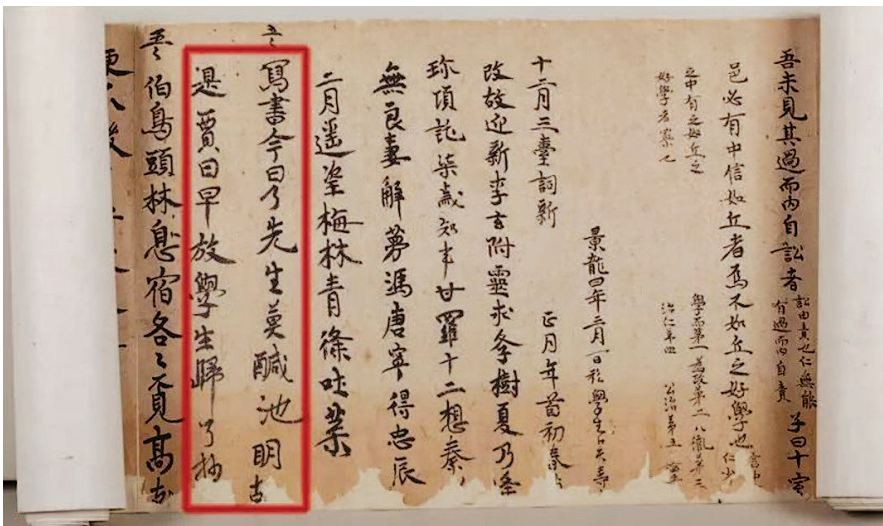 吾未見其過而內自訟者 訟由責也仁無能
有過而內自責 子曰十室
邑必有中信如丘者焉不如丘之好學也
之中有之如丘之
好學者寡也
學而第一 為政第二 八佾第三
公冶第五
景龍四年三月一日私學生卜天壽
十二月三臺詞新 正月年首初春
改故迎新李玄附靈求學樹夏乃逢
珎項託柒歲知事甘羅十二想秦
無良妻解夢馮唐寧得忠辰
二月遥望梅林青條吐葉
寫書今日了先生莫醎池明
是賈日早放學生歸
伯鳥頭林息宿各各覓高